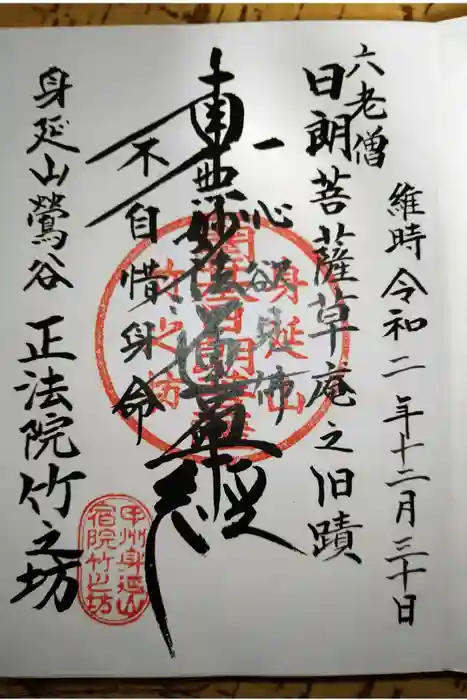 維時令和二年十二月三十日
六老僧
日朗菩薩草庵之旧蹟
一心欲見佛
南無妙法蓮華経
不自惜身命
身延山鶯谷 正法院竹之坊
身延山
竹之坊
甲州身延山
宿院竹之坊